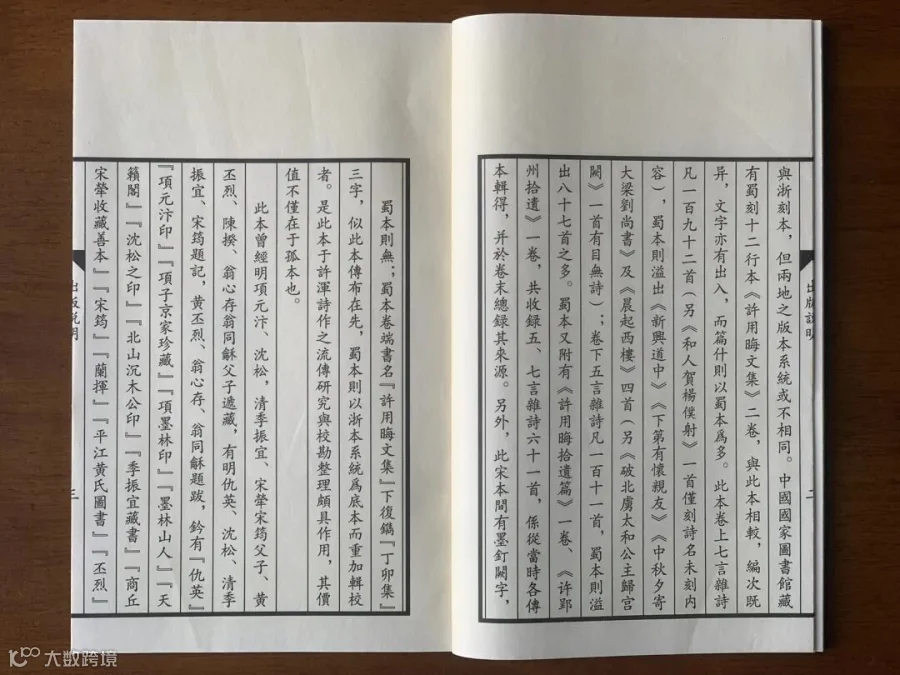 與浙刻本，但兩地之版本系統或不相同。中國國家圖書館藏
有蜀刻十二行本《許用晦文集》二卷，與此本相較，編次既
异，文字亦有出入，而篇什則以蜀本爲多。此本卷上七言雜詩
凡一百九十二首（另《和人賀楊僕射》一首僅刻詩名未刻内
容），蜀本則溢出《新興道中》《下第有懷親友》《中秋夕寄
大梁劉尚書》及《晨起西樓》四首（另《破北虜太和公主歸宫
闕》一首有目無詩）；卷下五言雜詩凡一百十一首，蜀本則溢
出八十七首之多。蜀本又附有《許用晦拾遺篇》一卷、《許郢
州拾遺》一卷，共收録五、七言雜詩六十一首，係從當時各傳
本輯得，并於卷末總録其來源。另外，此宋本間有墨釘闕字，
出版説明
二
蜀本則無；蜀本卷端書名『許用晦文集』下復鐫『丁卯集』
三字，似此本傳布在先，蜀本則以浙本系統爲底本而重加輯校
者。是此本于許渾詩作之流傳研究與校勘整理頗具作用，其價
值不僅在于孤本也。
此本曾經明項元汴、沈松，清季振宜、宋犖宋筠父子、黄
丕烈、陳揆、翁心存翁同龢父子遞藏，有明仇英、沈松、清季
振宜、宋筠題記，黄丕烈、翁心存、翁同龢題跋，鈐有『仇英』
『項元汴印』『項子京家珍藏』『項墨林印』『墨林山人』『天
籟閣』『沈松之印』『北山沉木公印』『季振宜藏書』『商丘
宋犖收藏善本』『宋筠』『蘭揮』『平江黄氏圖書』『丕烈』
出版説明
三
大数跨境